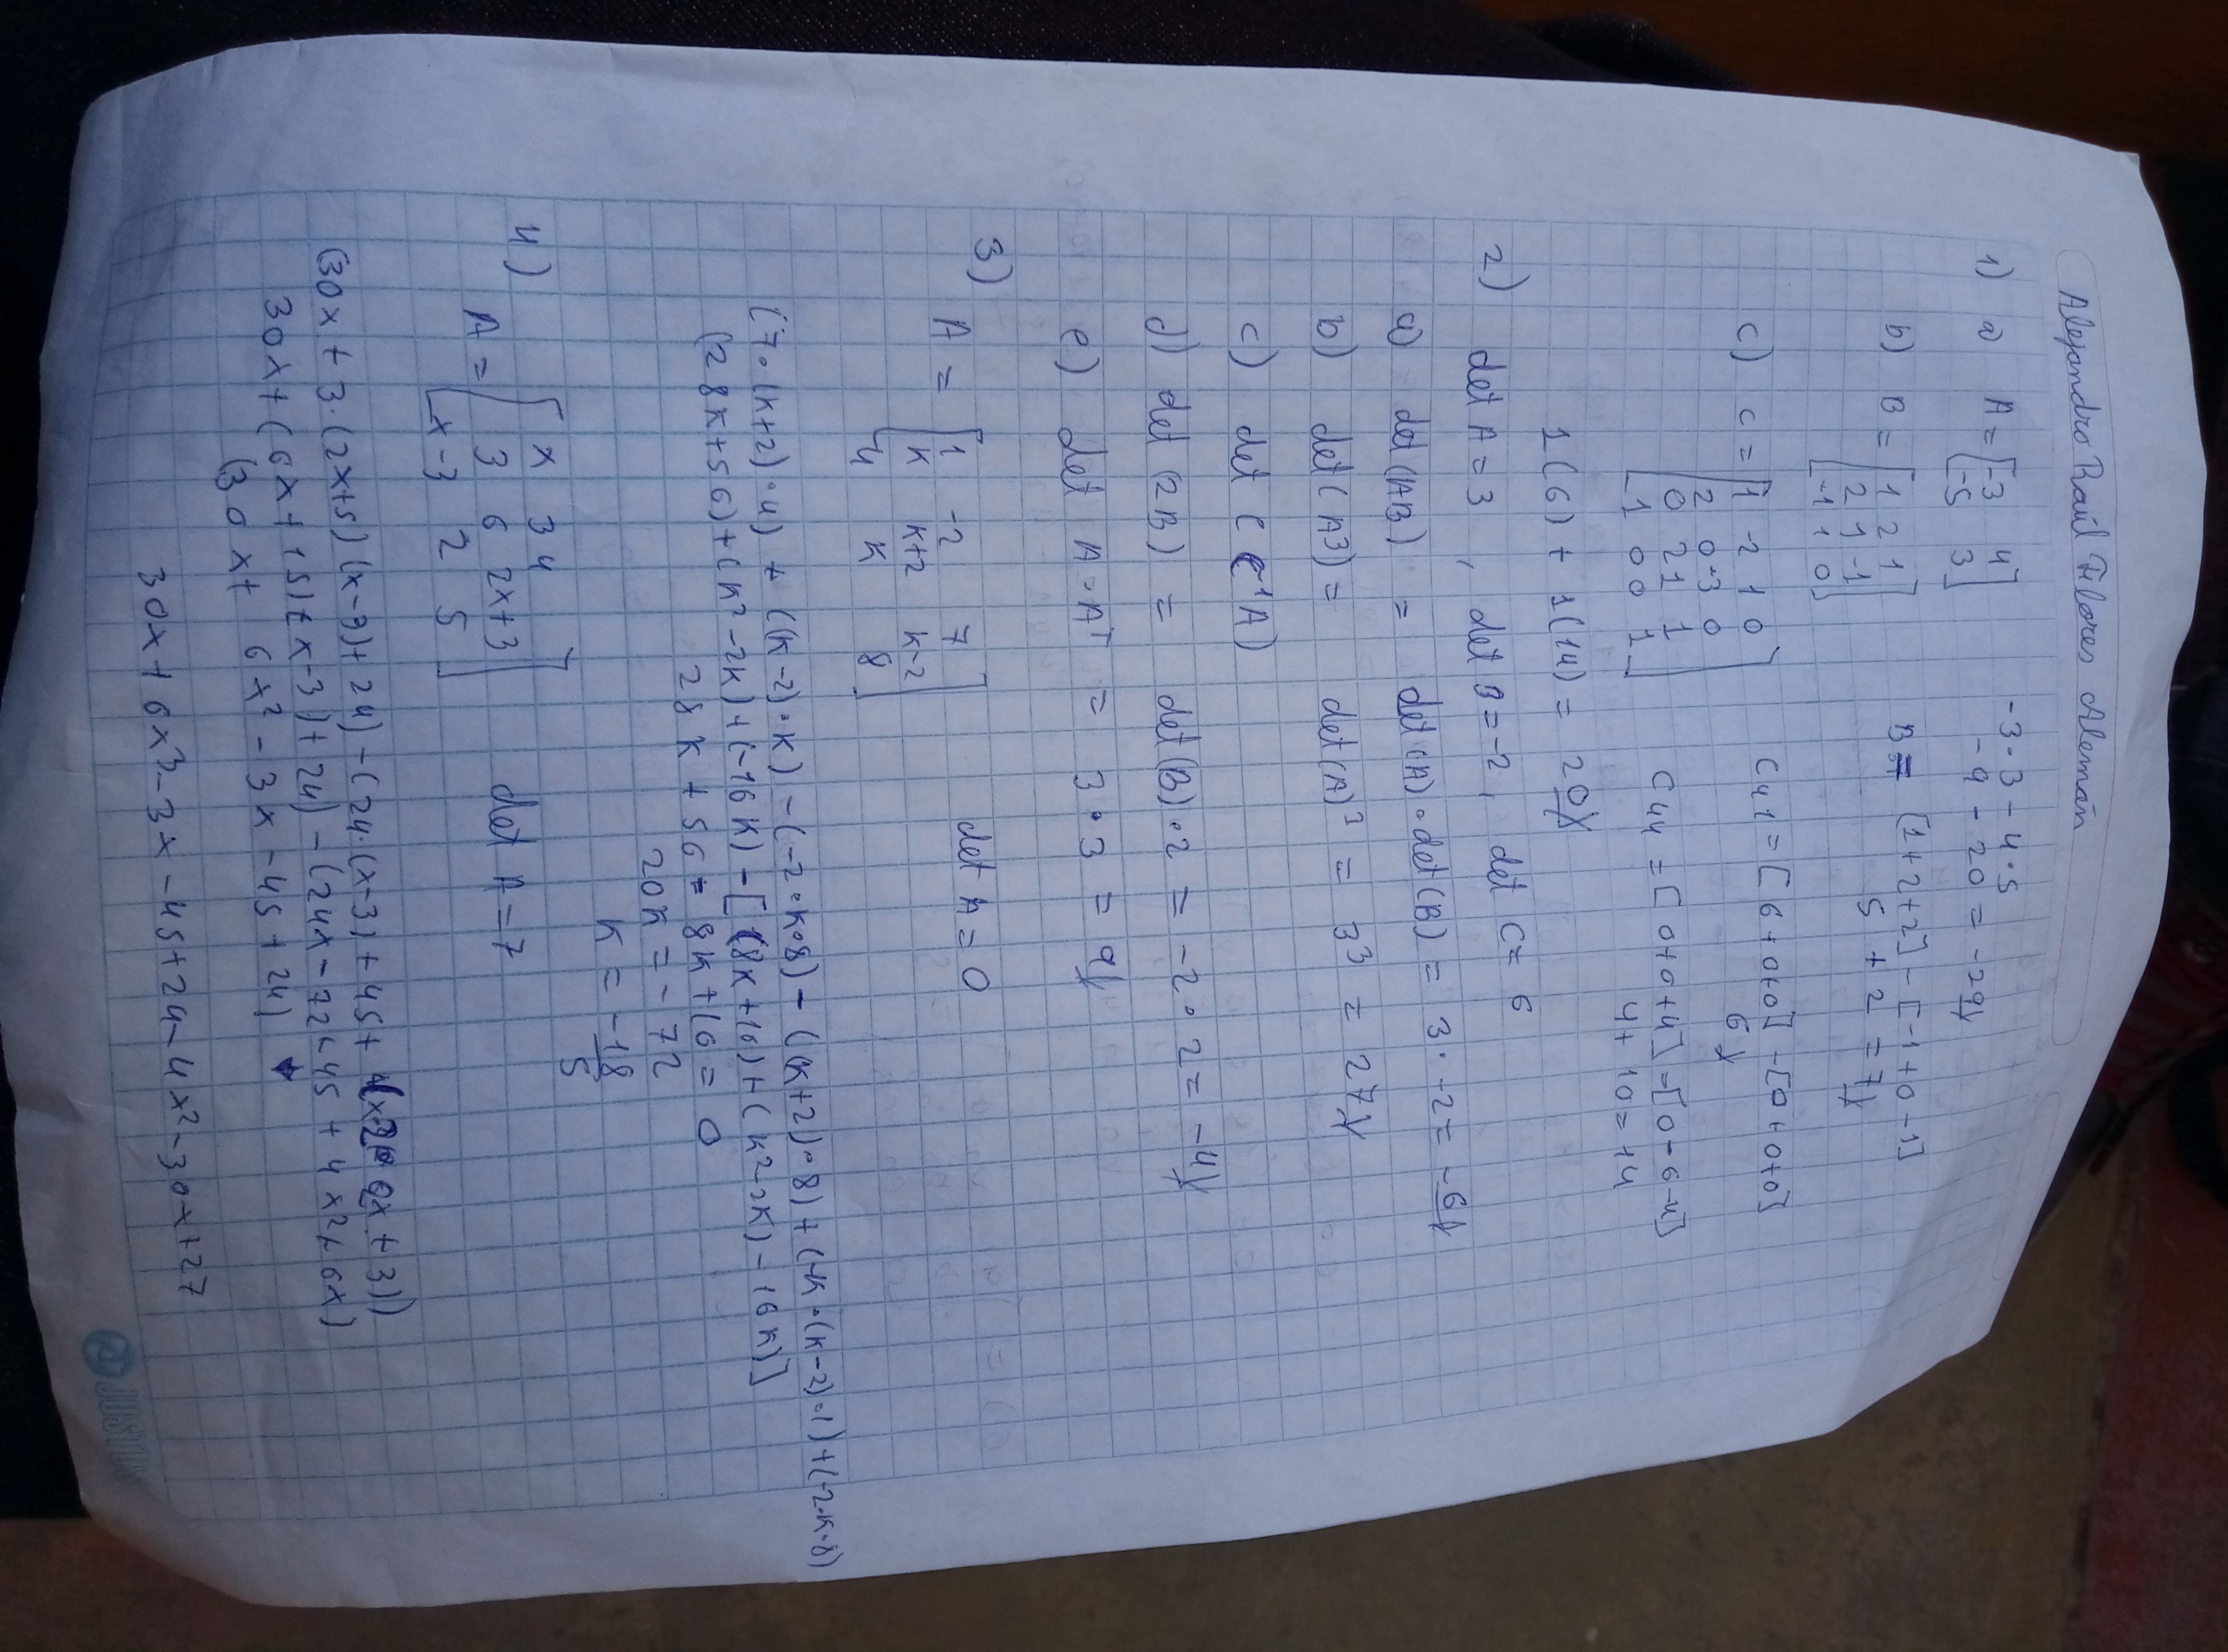 Alejandro Raúl Flores Alemán
1) a) A = [-3 4 -3·3 - 4·5
-5 3] -9 - 20 = -29
b) B = [1 2 1 B = [1+2+2] - [-1+0-1]
2 1 -1 5 + 2 = 7
-1 1 0]
c) C = [1 -2 1 0 C41 = [6+0+0] - [0+0+0]
2 0 -3 0 6
0 2 1 1 C44 = [0+0+4] = [0-6-4]
1 0 0 1] 4 + 10 = 14
1(6) + 1(14) = 20
2) det A = 3 , det B = -2 , det C = 6
a) det (AB) = det (A) · det (B) = 3 · -2 = -6
b) det (A3) = det (A)³ = 3³ = 27
c) det (C-1A)
d) det (2B) = det (B) · 2 = -2 · 2 = -4
e) det A · AT = 3 · 3 = 9
3) A = [1 -2 7
k k+2 k-2 det A = 0
4 k 8]
(7·(k+2)·4) + ((k-2)·k) - (-2·k·8) - ((k+2)·8) + (4·(k-2)·1) + (-2·k·8)
(28k+56) + (k²-2k) + (-16k) - [(8k+16) + (k²-2k) - 16k)]
28k + 56 = 8k + 16 = 0
20k = -72
k = -18
5
4) A = [x 3 4
3 6 2x+3 det A = 7
x-3 2 5]
(30x + 3·(2x+5)(x-3) + 24) - (24·(x-3) + 45 + (2x+3))
30x + (6x+15)(x-3) + 24) - (24x - 72 + 45 + 4x² + 6x)
(30x + 6x² - 3x - 45 + 24)
30x + 6x² - 3x - 45 + 24 - 4x² - 30x + 27
JUSTUS